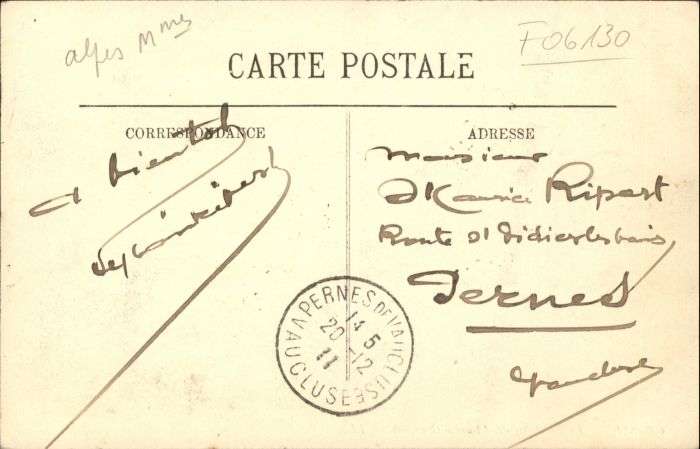 alpes Mmes
F06130
CARTE POSTALE
CORRESPONDANCE
A bientot
ADRESSE
Monsieur
Maurice Ripert
Route St Didier les bains
Pernes
Vaucluse
PERNES DE VAUCLUSE
14 5
20 - 12
11
VAUCLUSE